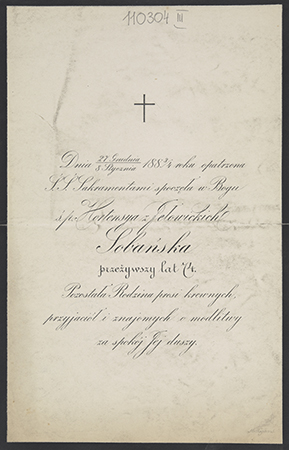 110304 III
Dnia 27 Grudnia / 8 Stycznia 1883/4 roku opatrzona
S.S. Sakramentami spoczęła w Bogu
ś.p. Hortensya z Jełowickich
Sobańska
przeżywszy lat 74.
Pozostała Rodzina prosi krewnych,
przyjaciół i znajomych o modlitwy
za spokój Jej duszy.